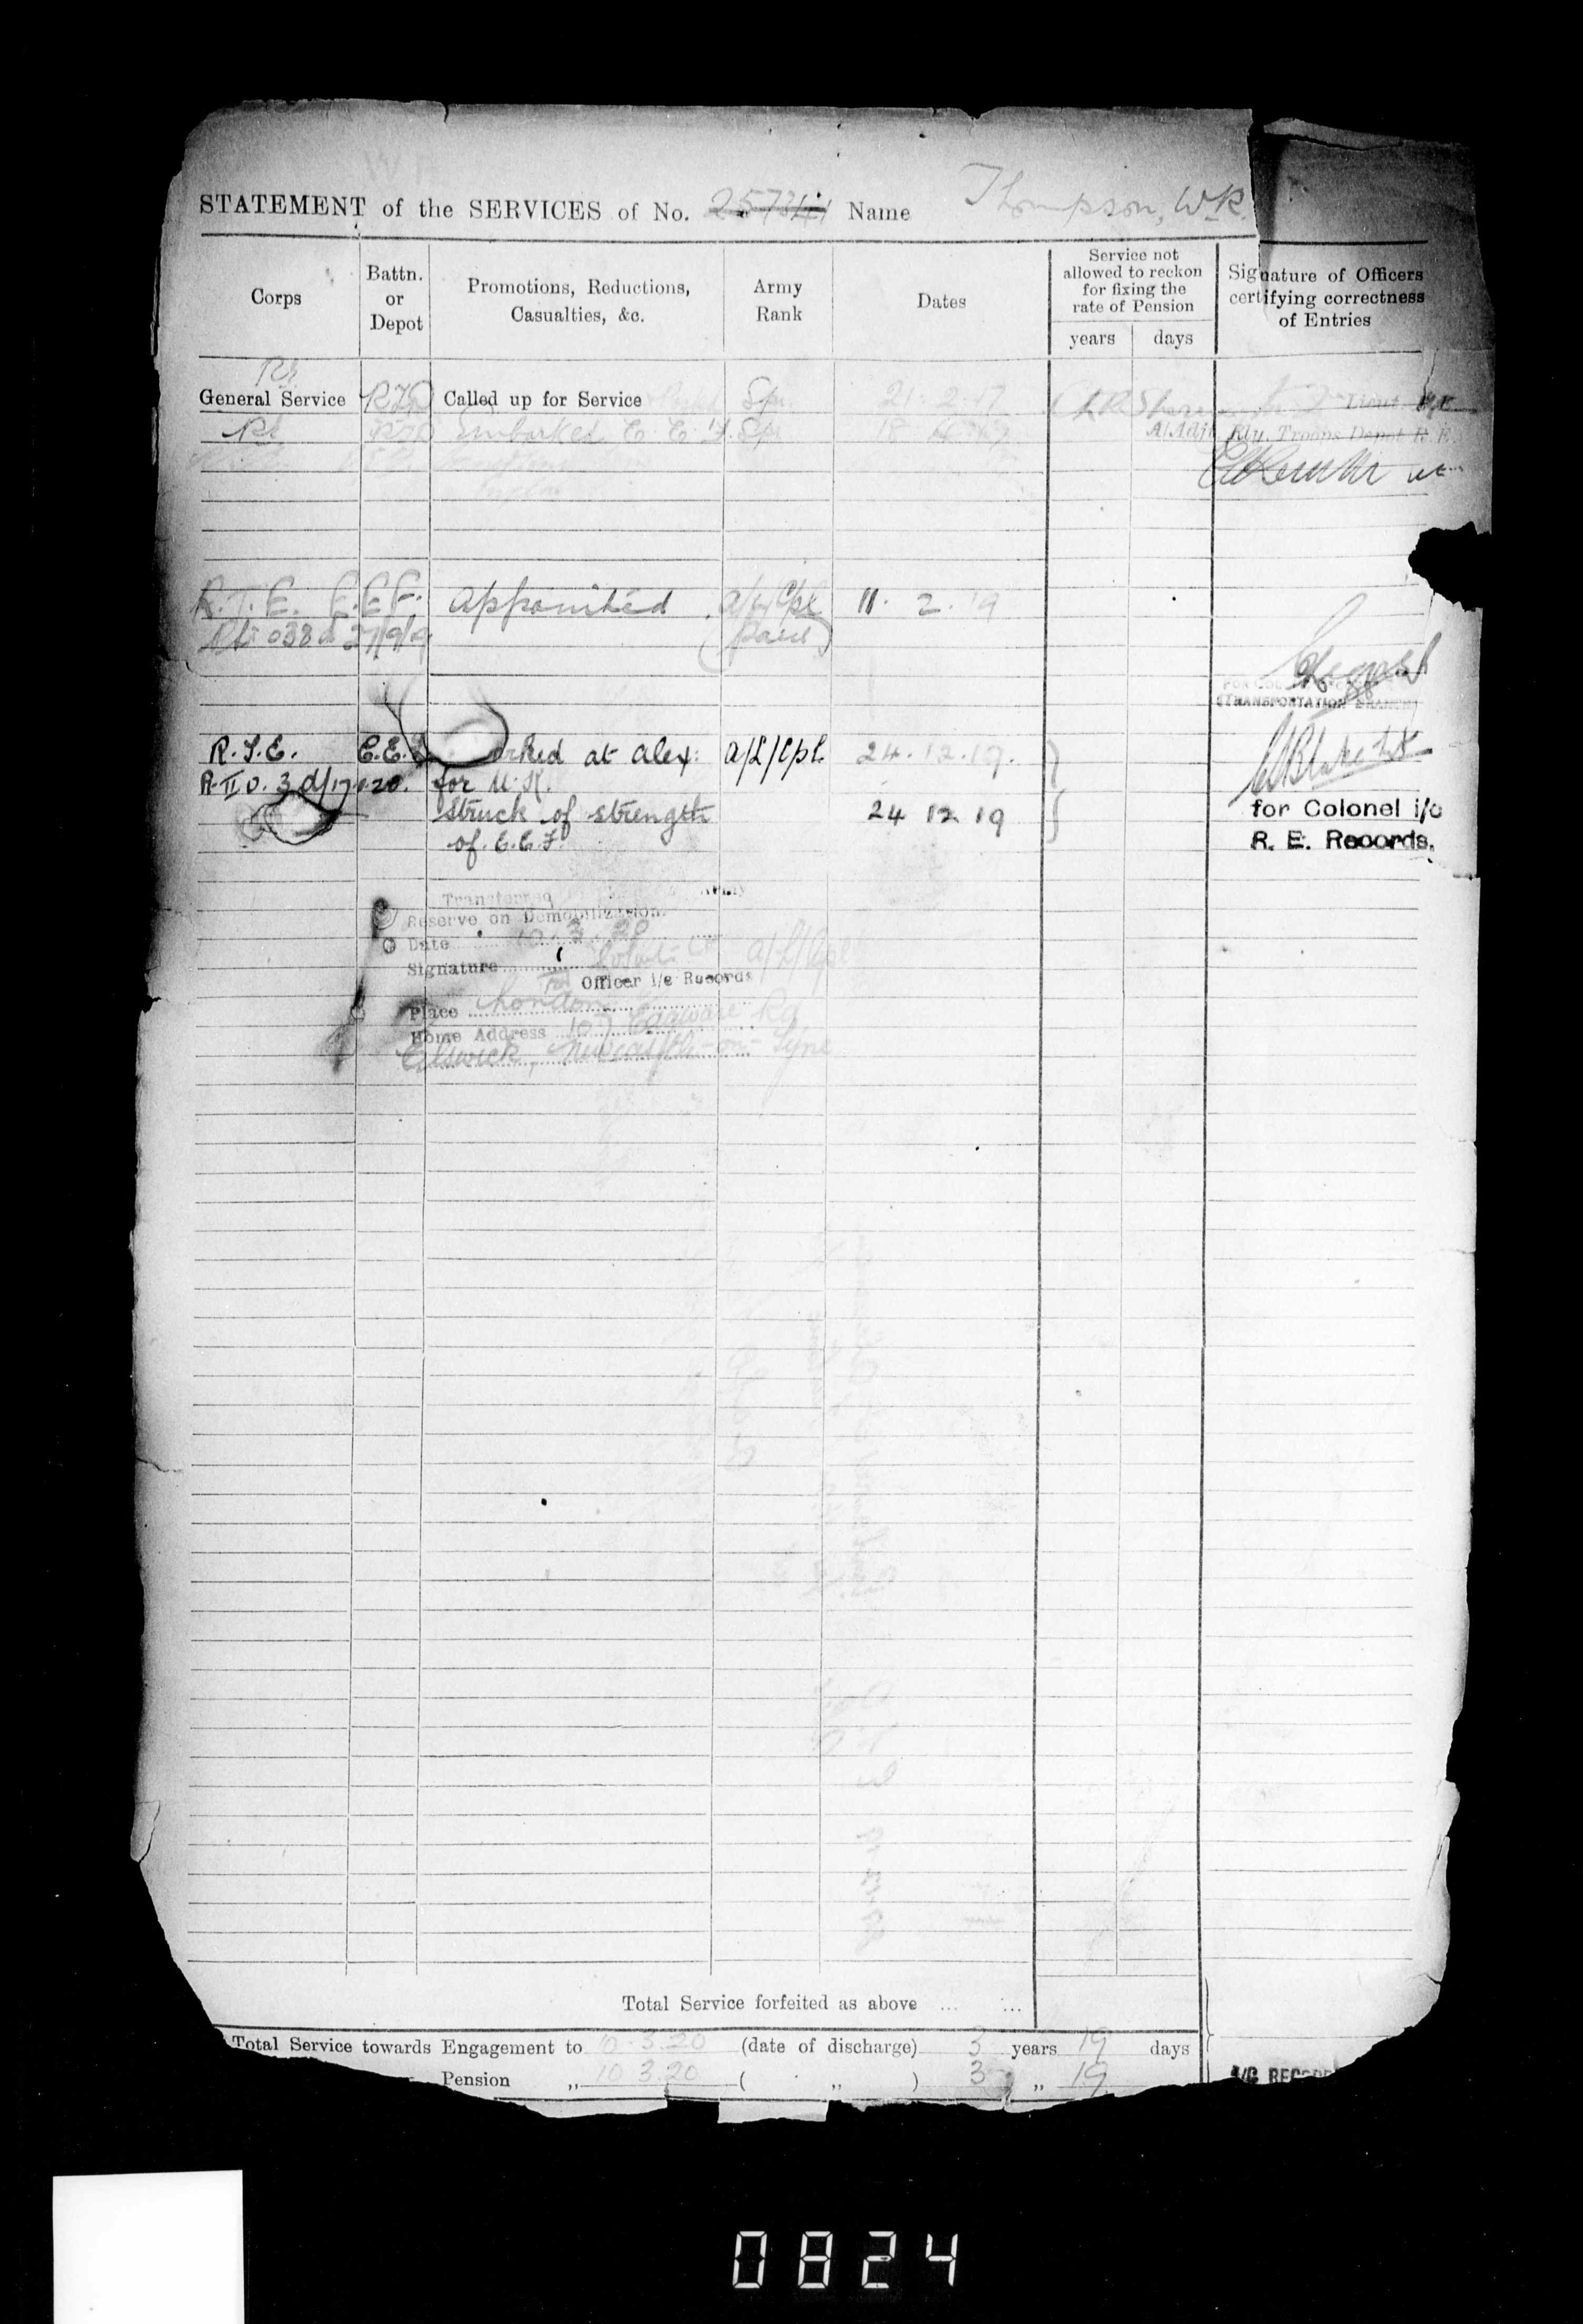 STATEMENT of the SERVICES of No. 257341 Name Thompson, W.R.
Corps
Battn. or Depot
Promotions, Reductions, Casualties, &c.
Army Rank
Dates
Service not allowed to reckon for fixing the rate of Pension
years days
Signature of Officers certifying correctness of Entries
RE
General Service RTD Called up for Service Spr. 21.2.17 Lieut. R.E.
RE RTD Embarked E.E.F. Spr 18 A/Adjt. Rly. Troops Depot R.E.
R.T.E. E.E.F. Appointed a/L/Cpl 11.2.19
(paid)
(TRANSPORTATION BRANCH)
R.T.E. E.E. arked at Alex: A/L/Cpl. 24.12.19.
R.II O. 3 d/17.1.20. for U.K.
Struck of strength 24 12 19
of E.E.F.
for Colonel i/c
R. E. Records.
Transferred Army
Reserve on Demobilization.
Date 10.3.20
Signature A/L/Cpl
for Officer i/c Records
Place London
Home Address 107 Edgware Rd
Elswick, Newcastle-on-Tyne
Total Service forfeited as above ... ...
Total Service towards Engagement to 10.3.20 (date of discharge) 3 years 19 days
Pension „ 10 3.20 ( „ ) 3 „ 19
i/C RECOR
0824